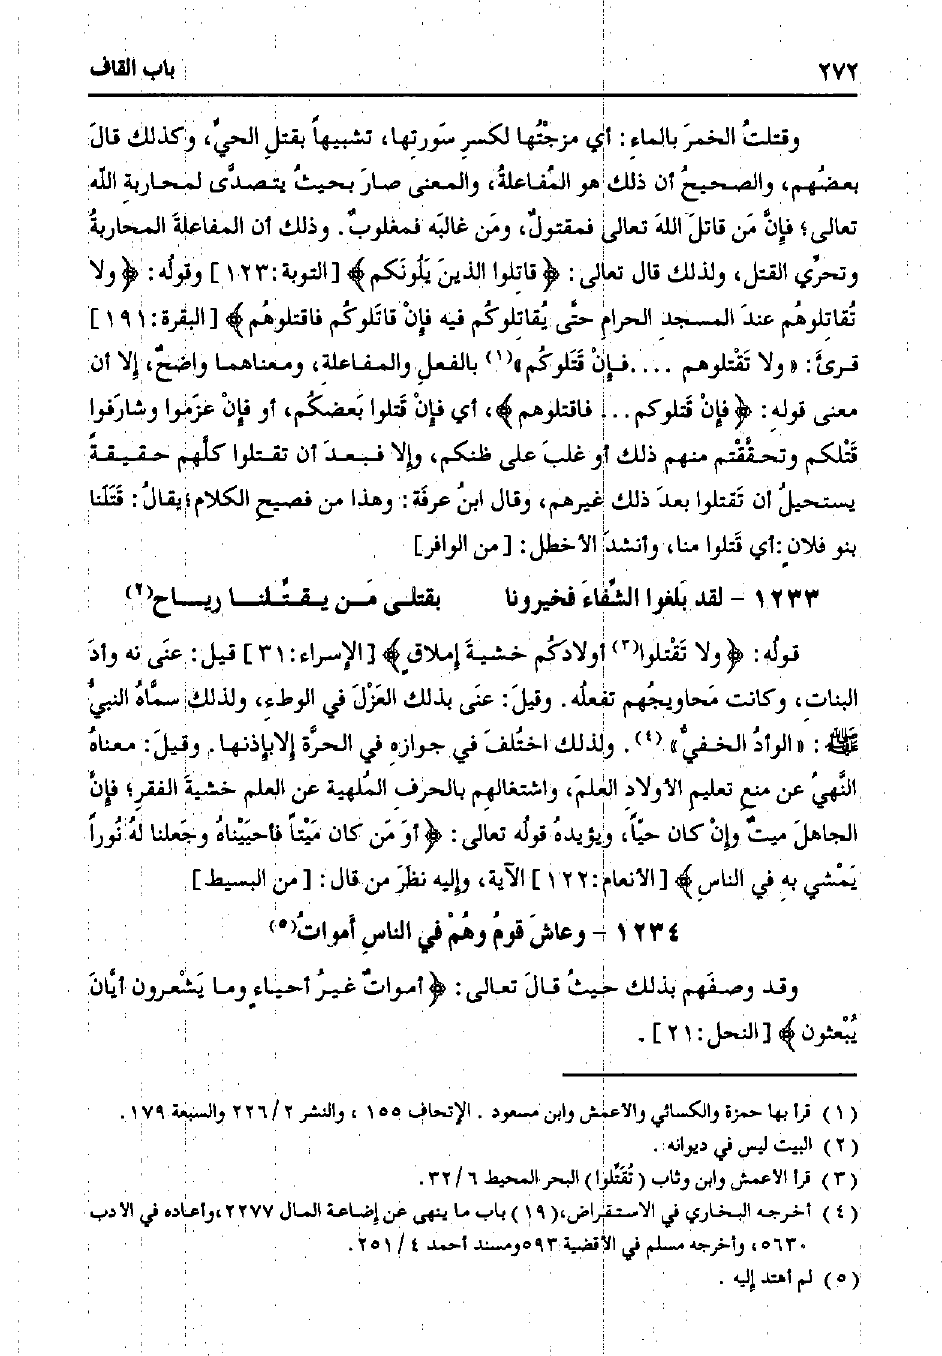 ٢٧٢ باب القاف
وقتلتُ الخمرَ بالماءِ: أي مزجْتُها لكسرِ سَورتِها، تشبيهاً بقتلِ الحيِّ، وكذلك قالَ
بعضُهم، والصحيحُ أن ذلك هو المُفاعلةُ، والمعنى صارَ بحيثُ يتصدَّى لمحاربةِ الله
تعالى؛ فإنَّ مَن قاتلَ اللهَ تعالى فمقتولٌ، ومَن غالبَه فمغلوبٌ. وذلك أن المفاعلةَ المحاربةُ
وتحرِّي القتل، ولذلك قال تعالى: ﴿ قاتلوا الذينَ يَلُونَكم ﴾ [التوبة: ١٢٣] وقولُه: ﴿ ولا
تُقاتلوهم عندَ المسجد الحرامِ حتَّى يُقاتلوكم فيه فإنْ قاتَلوكم فاقتلوهُم ﴾ [البقرة: ١٩١]
قرئَ: « ولا تَقْتلوهم .... فإنْ قَتَلوكُم »(١) بالفعلِ والمفاعلة، ومعناهما واضحٌ، إلا أن
معنى قولِه: ﴿ فإنْ قَتلوكم... فاقتلوهم ﴾، أي فإنْ قَتلوا بَعضكُم، أو فإنْ عزَموا وشارَفوا
قَتْلكم وتحقَّقْتم منهم ذلك أو غلبَ على ظنكم، وإلا فبعدَ أن تقتلوا كلَّهم حقيقةً
يستحيلُ أن تَقتلوا بعدَ ذلك غيرهم، وقال ابنُ عرفَة: وهذا من فصيحِ الكلام؛ يقالُ: قَتَلَنا
بنو فلانٍ: أي قَتلوا منا، وأنشدَ الأخطل: [من الوافر]
١٢٣٣ - لقد بَلغوا الشِّفاءَ فخبرونا بقتلى مَن يقتِّلنا رياح(٢)
قولُه: ﴿ ولا تَقْتلوا(٣) أولادَكُم خشيةَ إملاقٍ ﴾ [الإسراء: ٣١] قيل: عنَى نه وأدَ
البنات، وكانت مَحاويجُهم تفعلُه. وقيلَ: عنَى بذلك العَزْلَ في الوطءِ، ولذلك سمَّاهُ النبيُّ
ﷺ: « الوأدُ الخفيُّ »(٤). ولذلك اختُلفَ في جوازِه في الحرَّة إلا بإذنها. وقيلَ: معناهُ
النَّهيُ عن منعِ تعليم الأولادِ العلمَ، واشتغالهم بالحرفِ المُلهية عن العلم خشيةَ الفقرِ؛ فإنَّ
الجاهلَ ميتٌ وإنْ كان حيّاً، ويؤيدهُ قولُه تعالى: ﴿ أوَ مَن كان مَيْتاً فأحيَيْناهُ وجَعلنا لهُ نُوراً
يَمْشي بهِ في الناسِ ﴾ [الأنعام: ١٢٢] الآية، وإليه نظَرَ من قال: [من البسيط]
١٢٣٤ - وعاشَ قومُ وهُمْ في الناسِ أمواتُ(٥)
وقد وصفَهم بذلك حيثُ قالَ تعالى: ﴿ أمواتٌ غيرُ أحياءٍ وما يَشْعرون أيَّانَ
يُبْعثون ﴾ [النحل: ٢١].
(١) قرأ بها حمزة والكسائي والأعمش وابن مسعود. الإتحاف ١٥٥، والنشر ٢/ ٢٢٦ والسبعة ١٧٩.
(٢) البيت ليس في ديوانه.
(٣) قرأ الأعمش وابن وثاب (تُقَتِّلوا) البحر المحيط ٦/ ٣٢.
(٤) أخرجه البخاري في الاستقراض، (١٩) باب ما ينهى عن إضاعة المال ٢٢٧٧، وأعاده في الأدب
٥٦٣٠، وأخرجه مسلم في الأقضية ٥٩٣ ومسند أحمد ٤/ ٢٥١.
(٥) لم أهتد إليه.